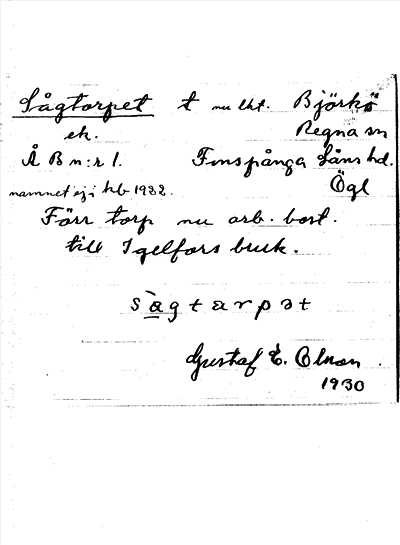 Sågtorpet t nu lht. Björkö
ek. Regna sn
Å B n:r 1. Finspånga Läns hd.
namnet ej i hb 1932. Ögl
Förr torp nu arb. bost.
till Igelfors bruk.
sàgtarpət
Gustaf E. Olson
1930